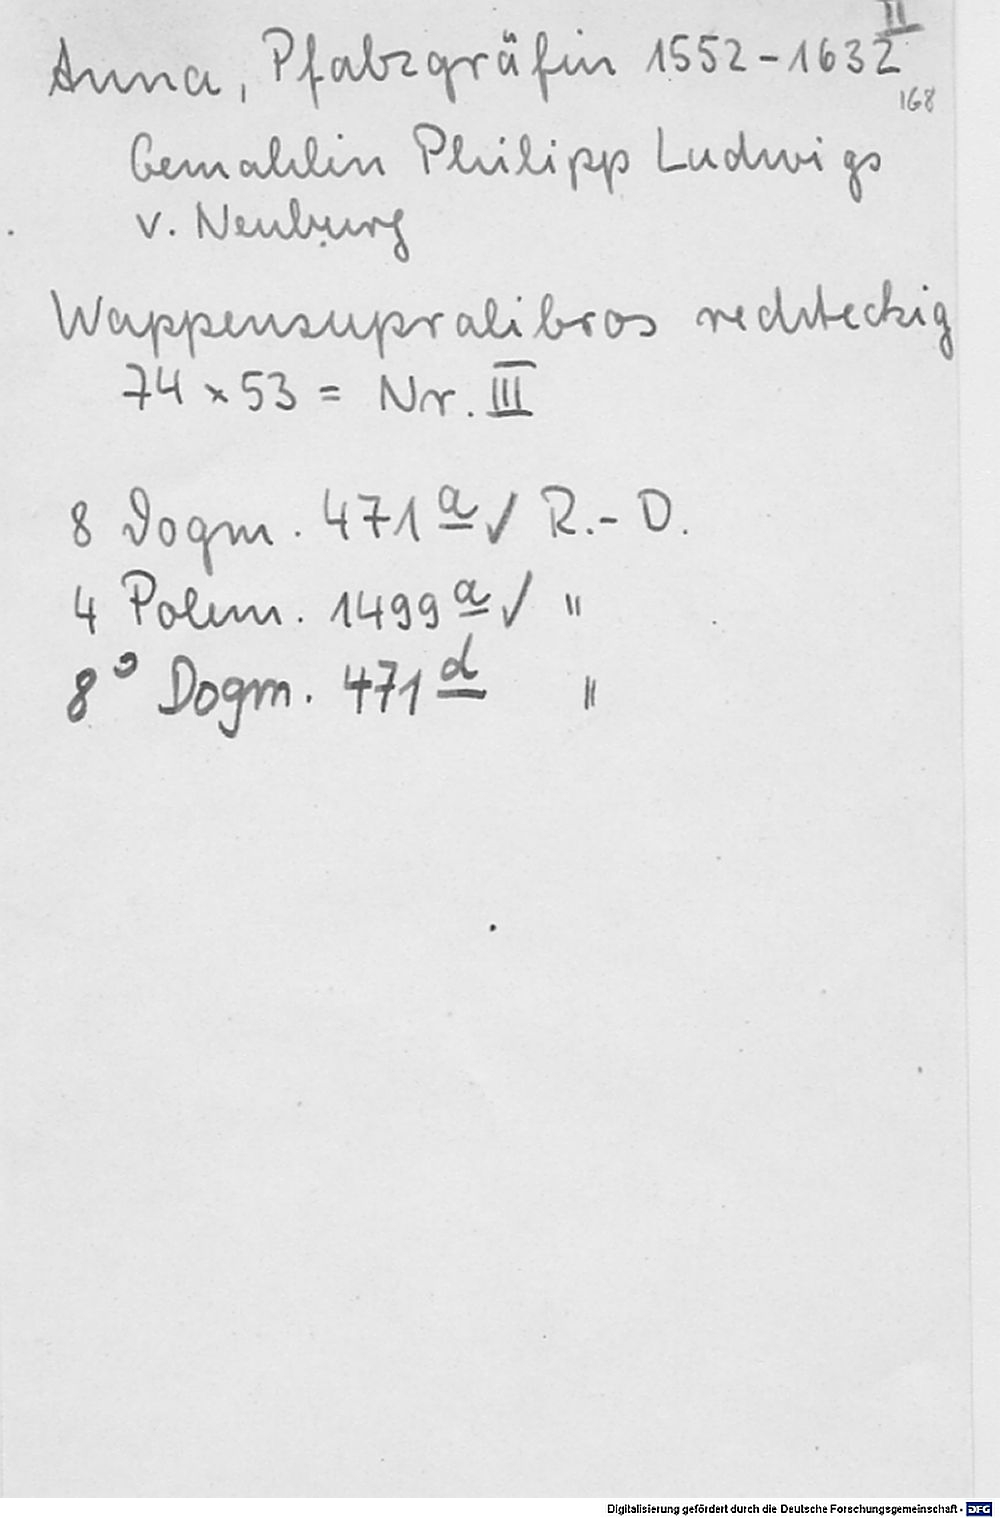 II
Anna, Pfalzgräfin 1552-1632
168
Gemahlin Philipp Ludwigs
v. Neuburg
Wappensupralibros rechteckig
74 x 53 = Nr. III
8 Dogm. 471 a ✓ R.-D.
4 Polem. 1499 a ✓ "
8° Dogm. 471 d "
Digitalisierung gefördert durch die Deutsche Forschungsgemeinschaft - DFG